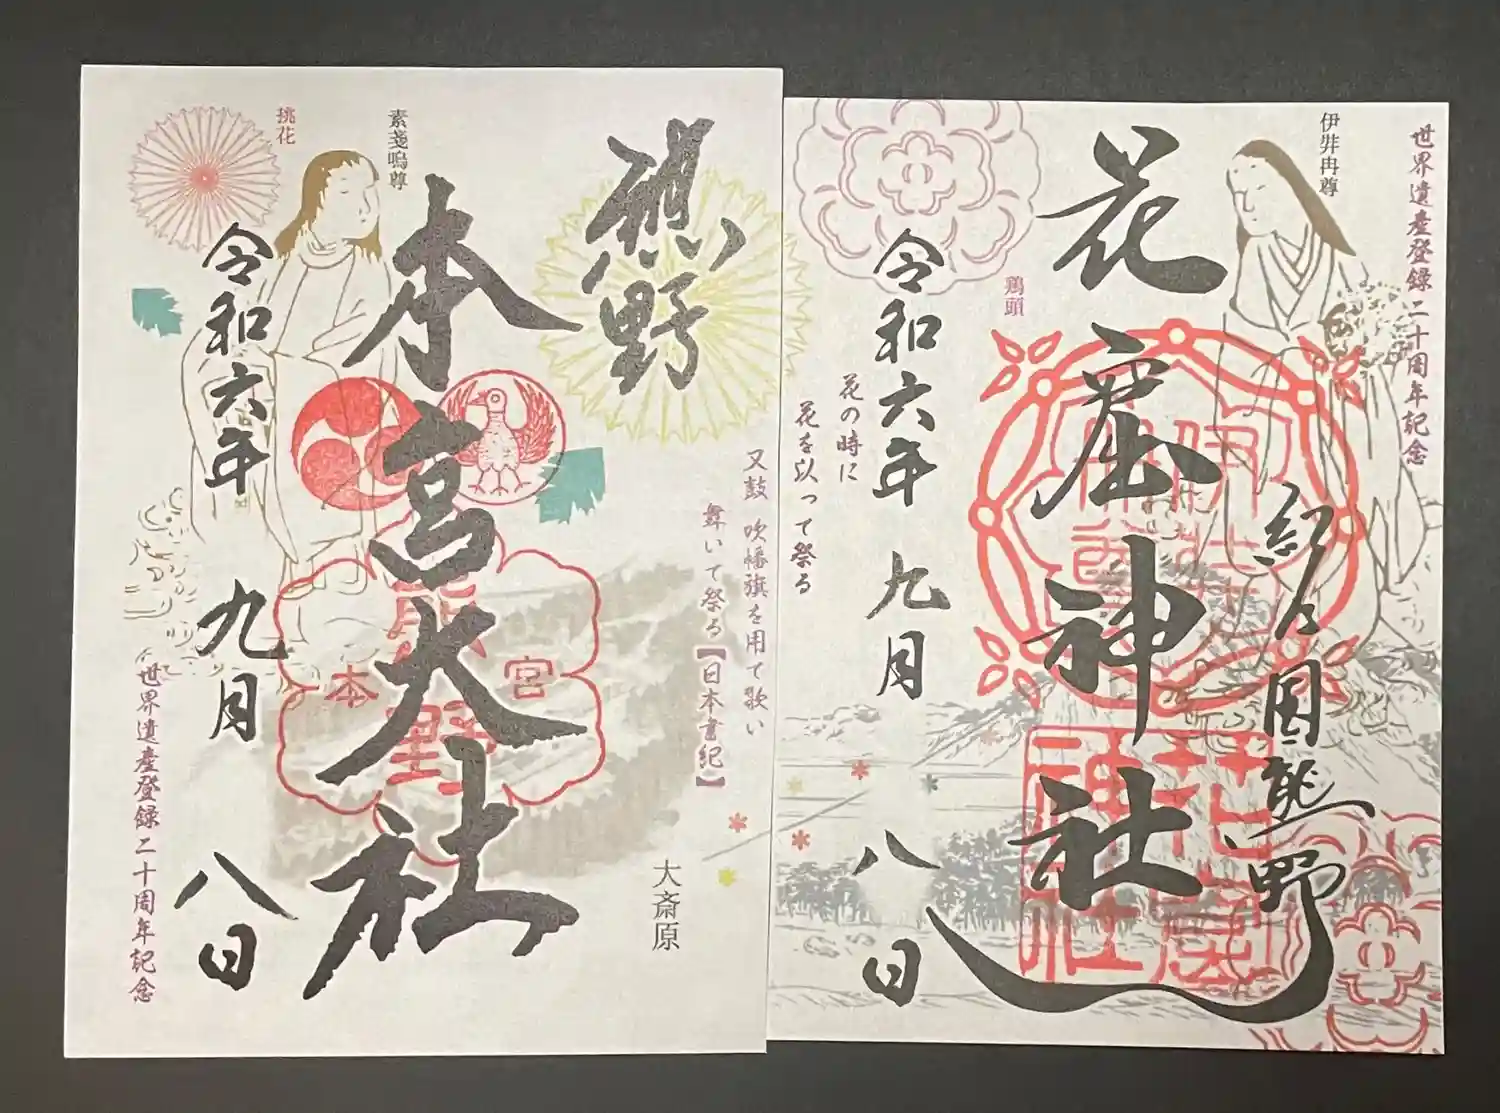 世界遺産登録二十周年記念
伊弉冉尊
紀伊国熊野
花窟神社
鶏頭
令和六年 九月 八日
花の時に
花を以って祭る
又鼓 吹幡旗を用て歌い
舞いて祭る【日本書紀】
大斎原
熊野
本宮大社
本 宮
熊野
素戔嗚尊
挑花
令和六年 九月 八日
世界遺産登録二十周年記念